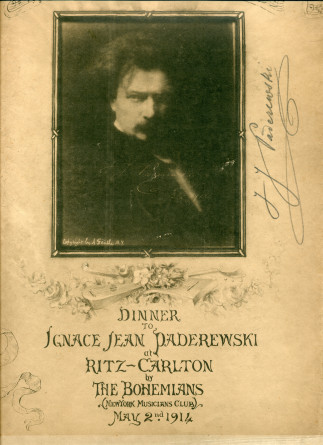 J J Paderewski
DINNER
TO
IGNACE JEAN PADEREWSKI
at
RITZ-CARLTON
by
THE BOHEMIANS
(NEW YORK MUSICIANS CLUB)
MAY 2nd 1914